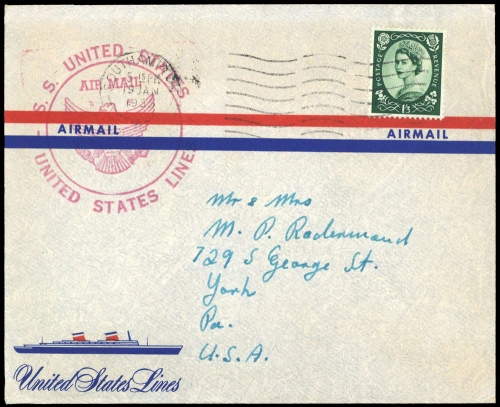 S.S. UNITED STATES
AIR MAIL
UNITED STATES LINES
SOUTHAMPTON
POSTAGE
REVENUE
1/3
AIRMAIL
AIRMAIL
Mr & Mrs
M. P. Radermand
729 S George St.
York
Pa.
U.S.A.
United States Lines